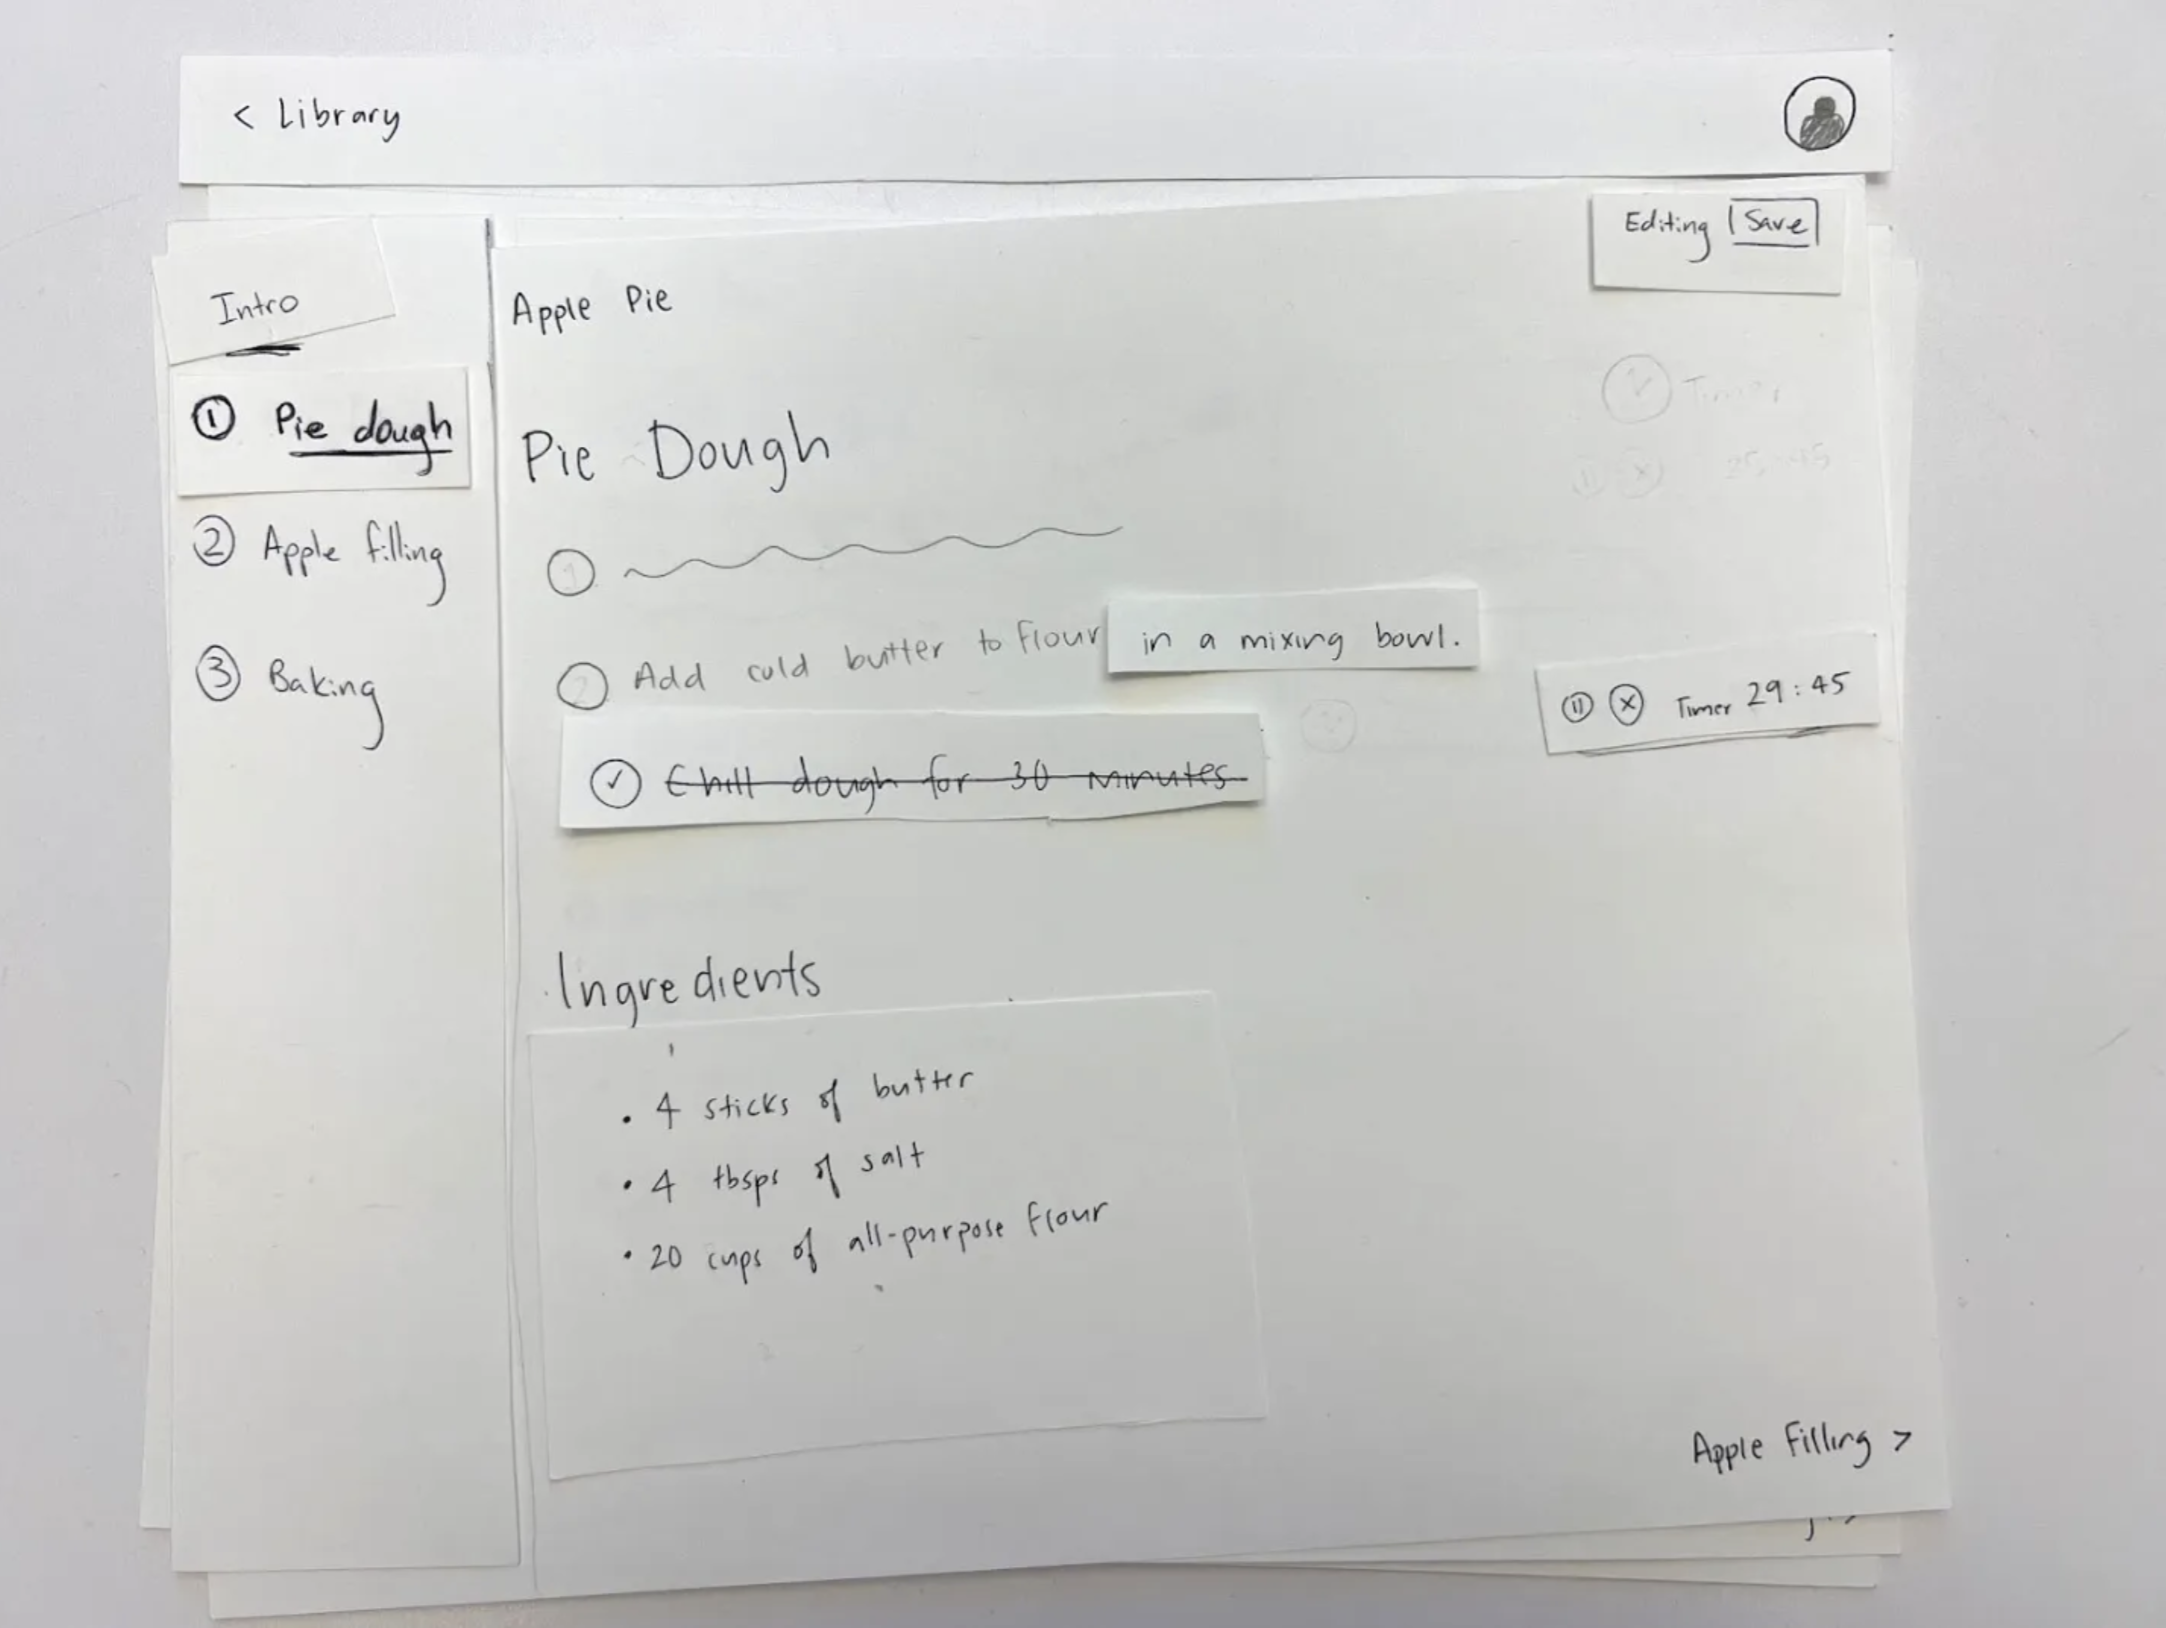 < Library
Editing | Save
Intro
① Pie dough
② Apple filling
③ Baking
Apple Pie
Timer
Pie Dough
25:45
①
② Add cold butter to flour in a mixing bowl.
Timer 29:45
Chill dough for 30 minutes
Ingredients
• 4 sticks of butter
• 4 tbsps of salt
• 20 cups of all-purpose flour
Apple Filling >